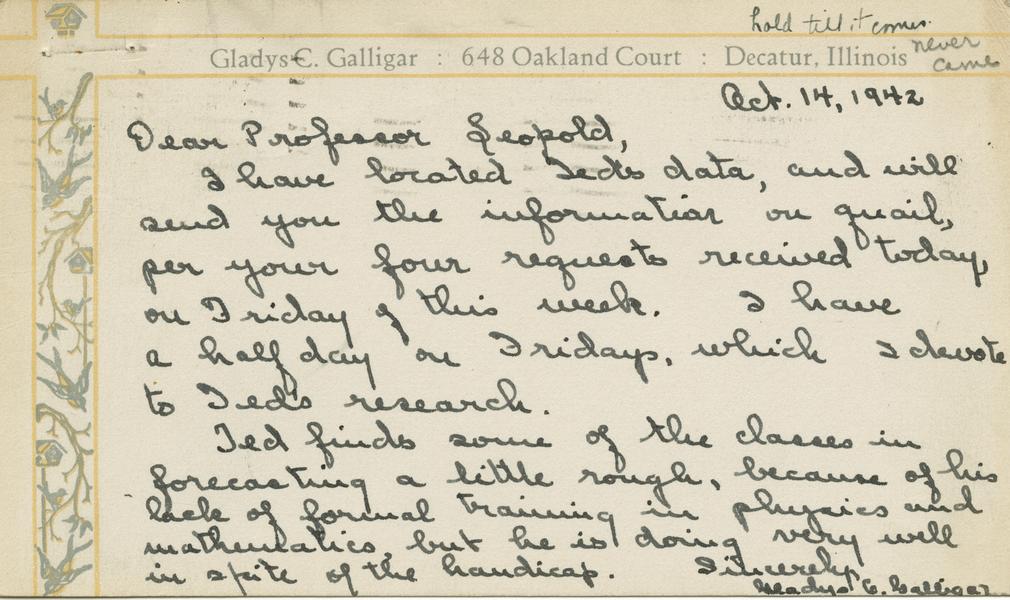 hold till it comes.
never
came
Gladys C. Galligar : 648 Oakland Court : Decatur, Illinois
Oct. 14, 1942
Dear Professor Leopold,
I have located Ted's data, and will
send you the information on quail,
per your four requests received today,
on Friday of this week. I have
a half day on Fridays, which I devote
to Ted's research.
Ted finds some of the classes in
forecasting a little rough, because of his
lack of formal training in physics and
mathematics, but he is doing very well
in spite of the handicap. Sincerely,
Gladys C. Galligar